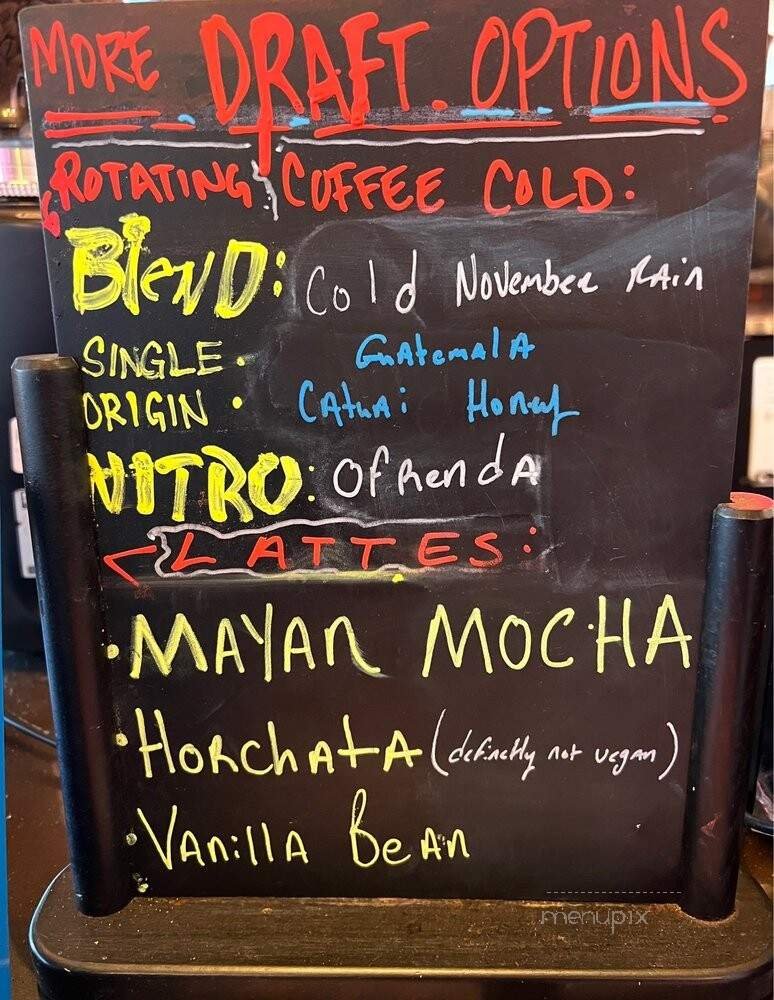 MORE DRAFT OPTIONS
ROTATING COFFEE COLD:
BlenD: Cold November RAin
SINGLE GuAtemalA
ORIGIN : CAtuAi Honey
NITRO: OfrendA
LATTES:
• MAYAn MOCHA
• HorchAtA (definetly not vegan)
• VAnillA BeAn
menupix